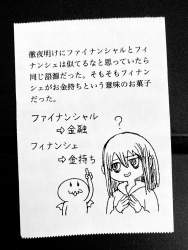 徹夜明けにファイナンシャルとフィ
ナンシェは似てるなと思っていたら
同じ語源だった。そもそもフィナン
シェがお金持ちという意味のお菓子
だった。
ファイナンシャル
⇨金融
?
フィナンシェ
⇨金持ち